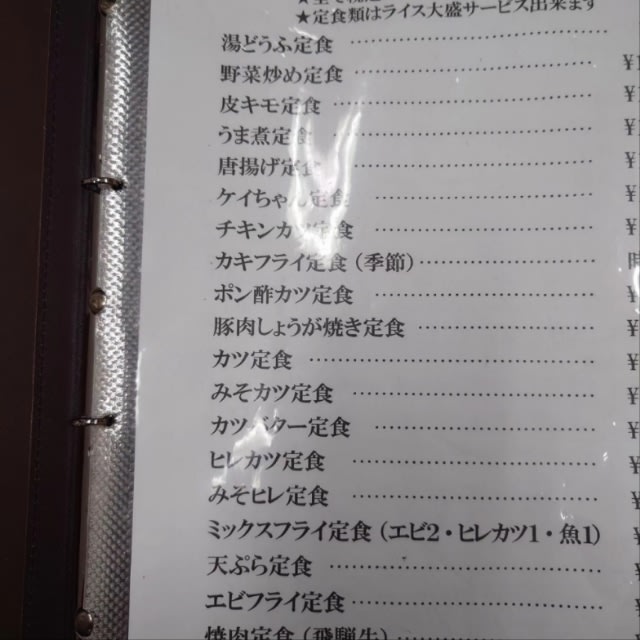 ★定食類はライス大盛サービス出来ます
湯どうふ定食
野菜炒め定食 ¥1
皮キモ定食 ¥1
うま煮定食 ¥1
唐揚げ定食 ¥
ケイちゃん定食 ¥
チキンカツ定食 ¥
カキフライ定食(季節)
ポン酢カツ定食 ¥
豚肉しょうが焼き定食 ¥
カツ定食 ¥
みそカツ定食 ¥
カツバター定食 ¥
ヒレカツ定食 ¥
みそヒレ定食 ¥
ミックスフライ定食(エビ2・ヒレカツ1・魚1) ¥
天ぷら定食 ¥
エビフライ定食 ¥
焼肉定食(飛騨牛)